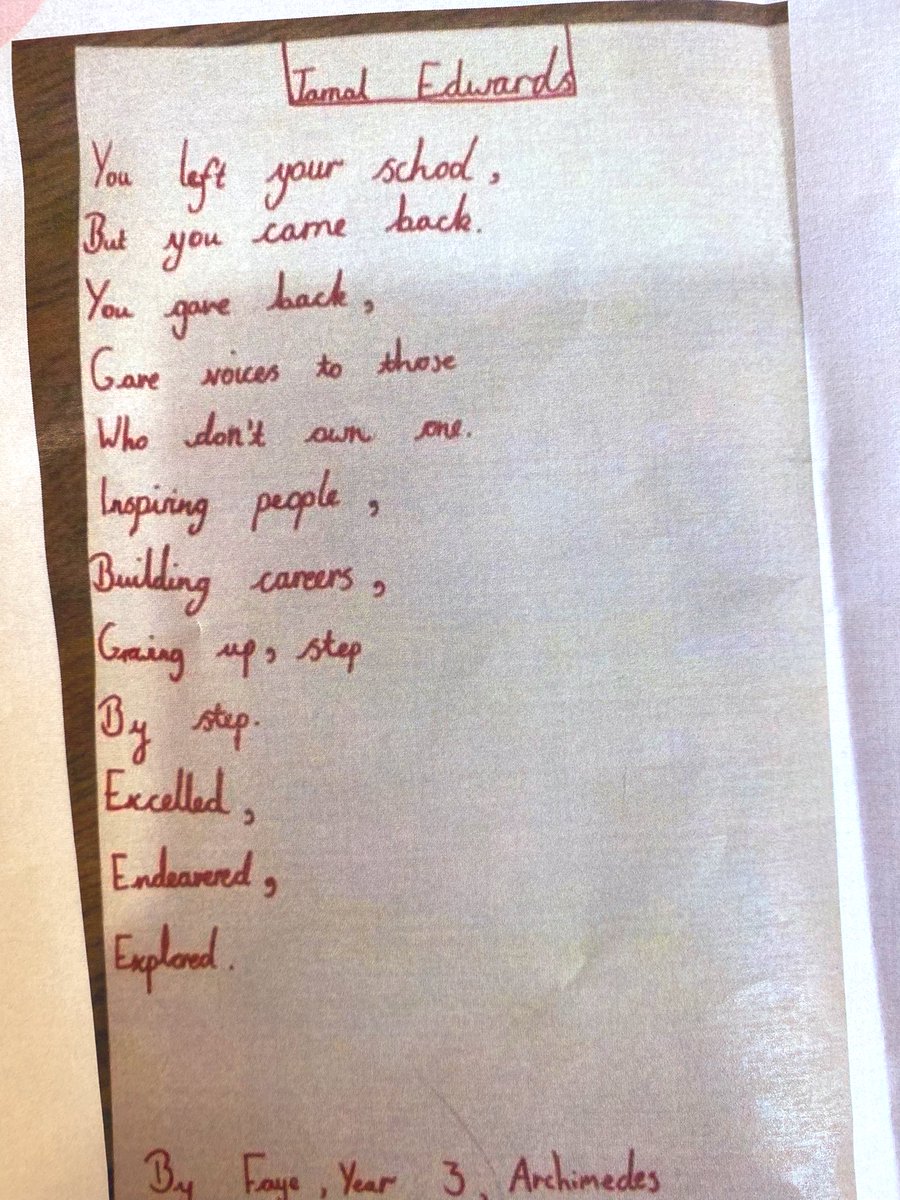 Jamal Edwards
You left your school,
But you came back.
You gave back,
Gave voices to those
Who don't own one.
Inspiring people,
Building careers,
Graing up, step
By step.
Excelled,
Endeavered,
Explored.
By Faye, Year 3, Archimedes